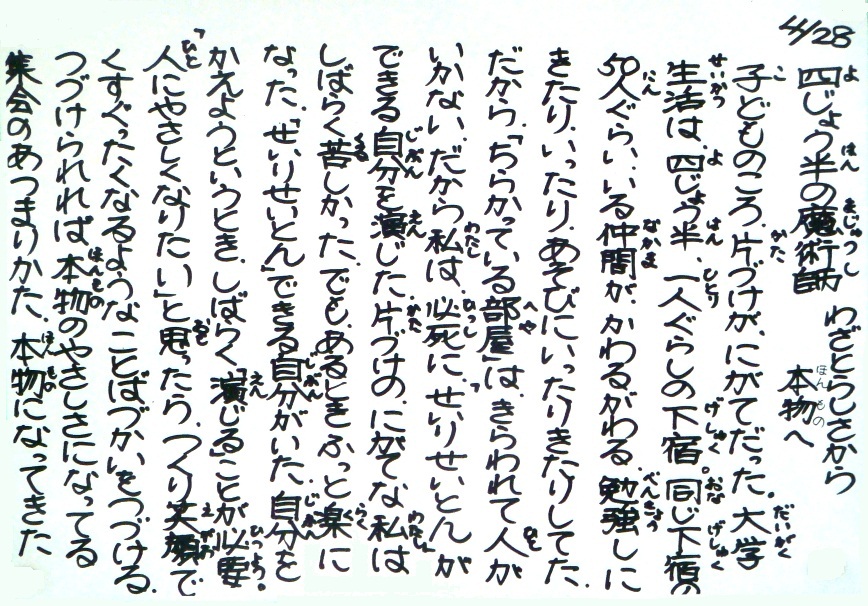 4/28
四じょう半の魔術師 わざとらしさから
本物へ
子どものころ、片づけが、にがてだった。大学
生活は、四じょう半、一人ぐらしの下宿。同じ下宿の
50人ぐらい、いる仲間が、かわるがわる、勉強しに
きたり、いったり、あそびにいったりきたりしてた。
だから、「ちらかっている部屋」は、きらわれて人が
いかない。だから私は、必死に、「せいりせいとんが
できる自分を演じた。片づけの、にがてな私は
しばらく苦しかった、でも、あるときふっと楽に
なった、「せいりせいとん」できる自分がいた、自分を
かえようというとき、しばらく「演じる」ことが必要。
「人にやさしくなりたい」と思ったら、つくり笑顔で
くすぐったくなるような「ことばづかい」をつづける。
つづけられれば本物のやさしさになってる
集会のあつまりかた、本物になってきた